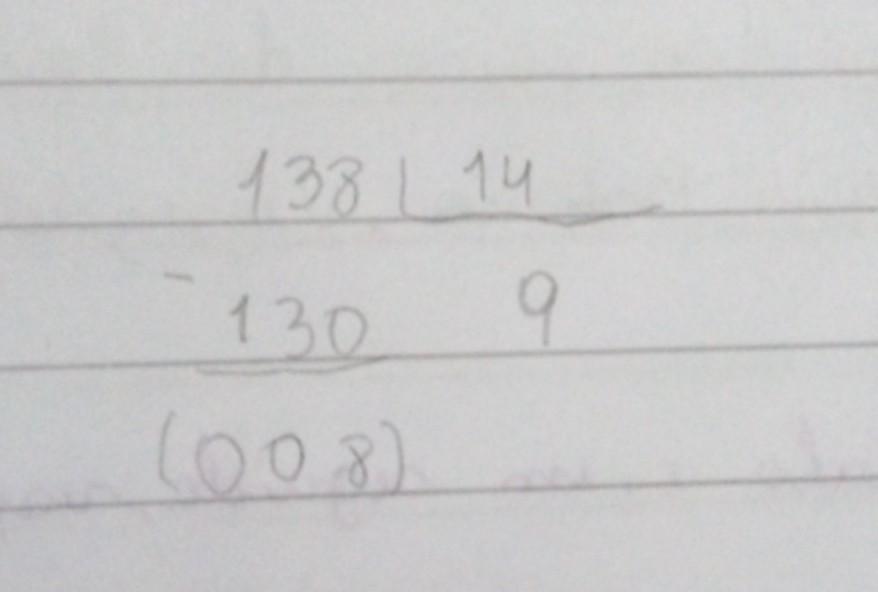 138 | 14
- 130 9
(008)